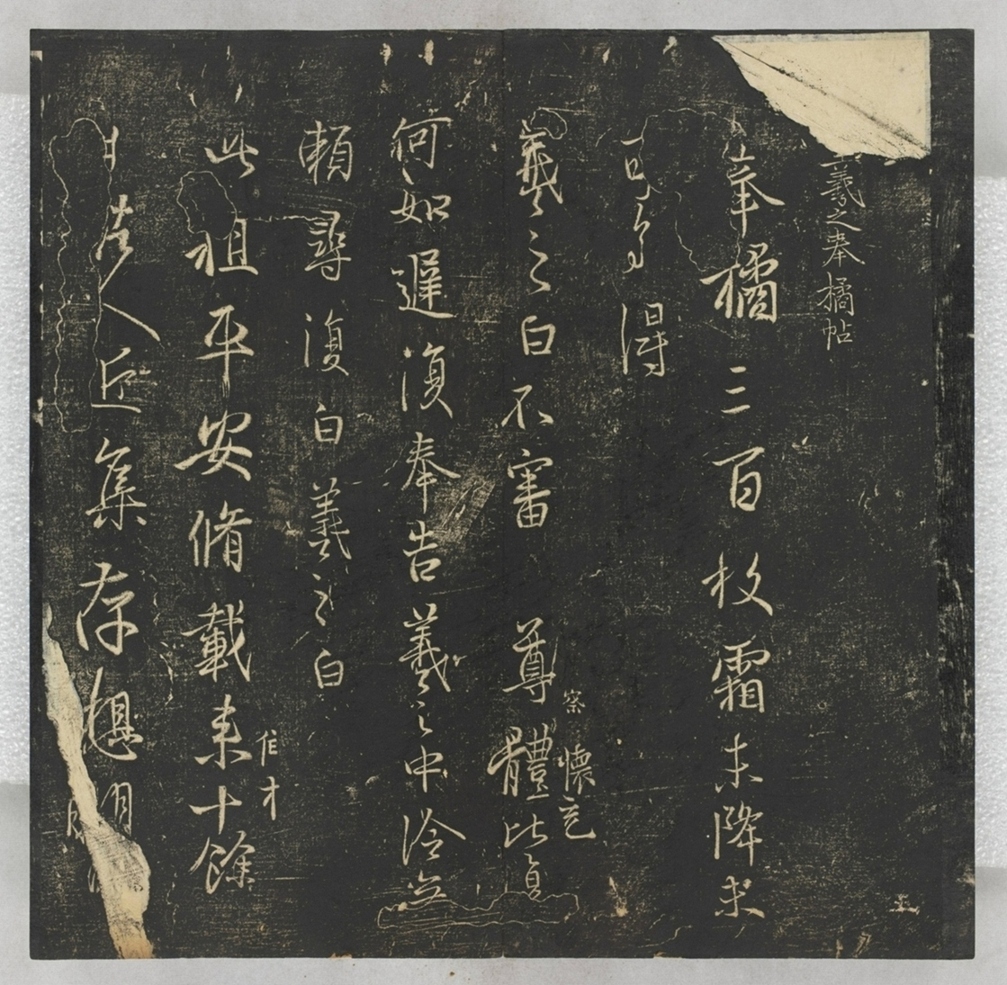 羲之奉橘帖
奉橘三百枚霜未降未
可多得
羲之白不審尊體比復
察懷充
何如遲復奉告羲之中冷無
賴尋復白羲之白
此粗平安脩載來十餘
隹才
日諸人近集存想明
五